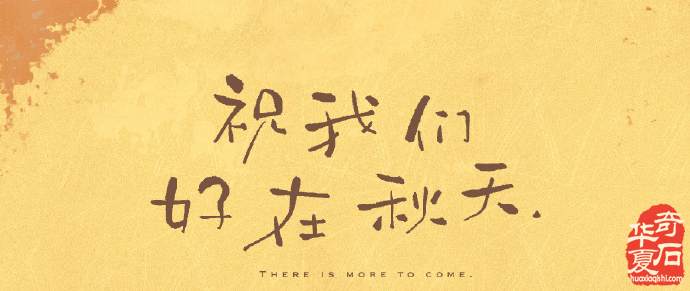 祝我们
好在秋天.
THERE IS MORE TO COME.
华夏奇石
huaxiaqishi.com